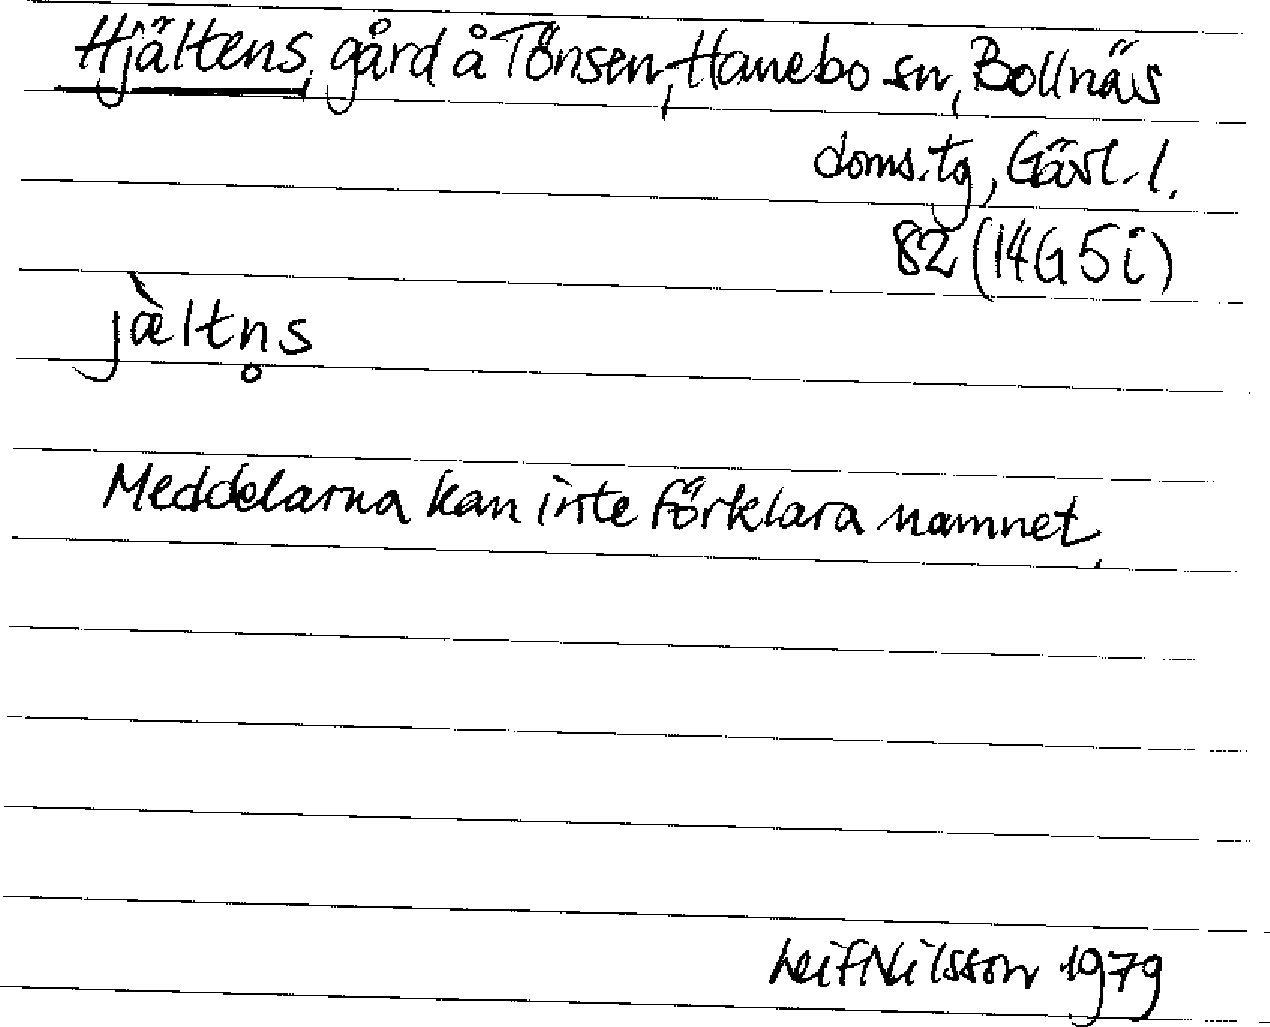 Hjältens, gård å Tönsen, Hanebo sn, Bollnäs
doms.tg, Gävl. l.
82 (14G 5i)
jæ̀ltn̥s
Meddelarna kan inte förklara namnet.
Leif Nilsson 1979